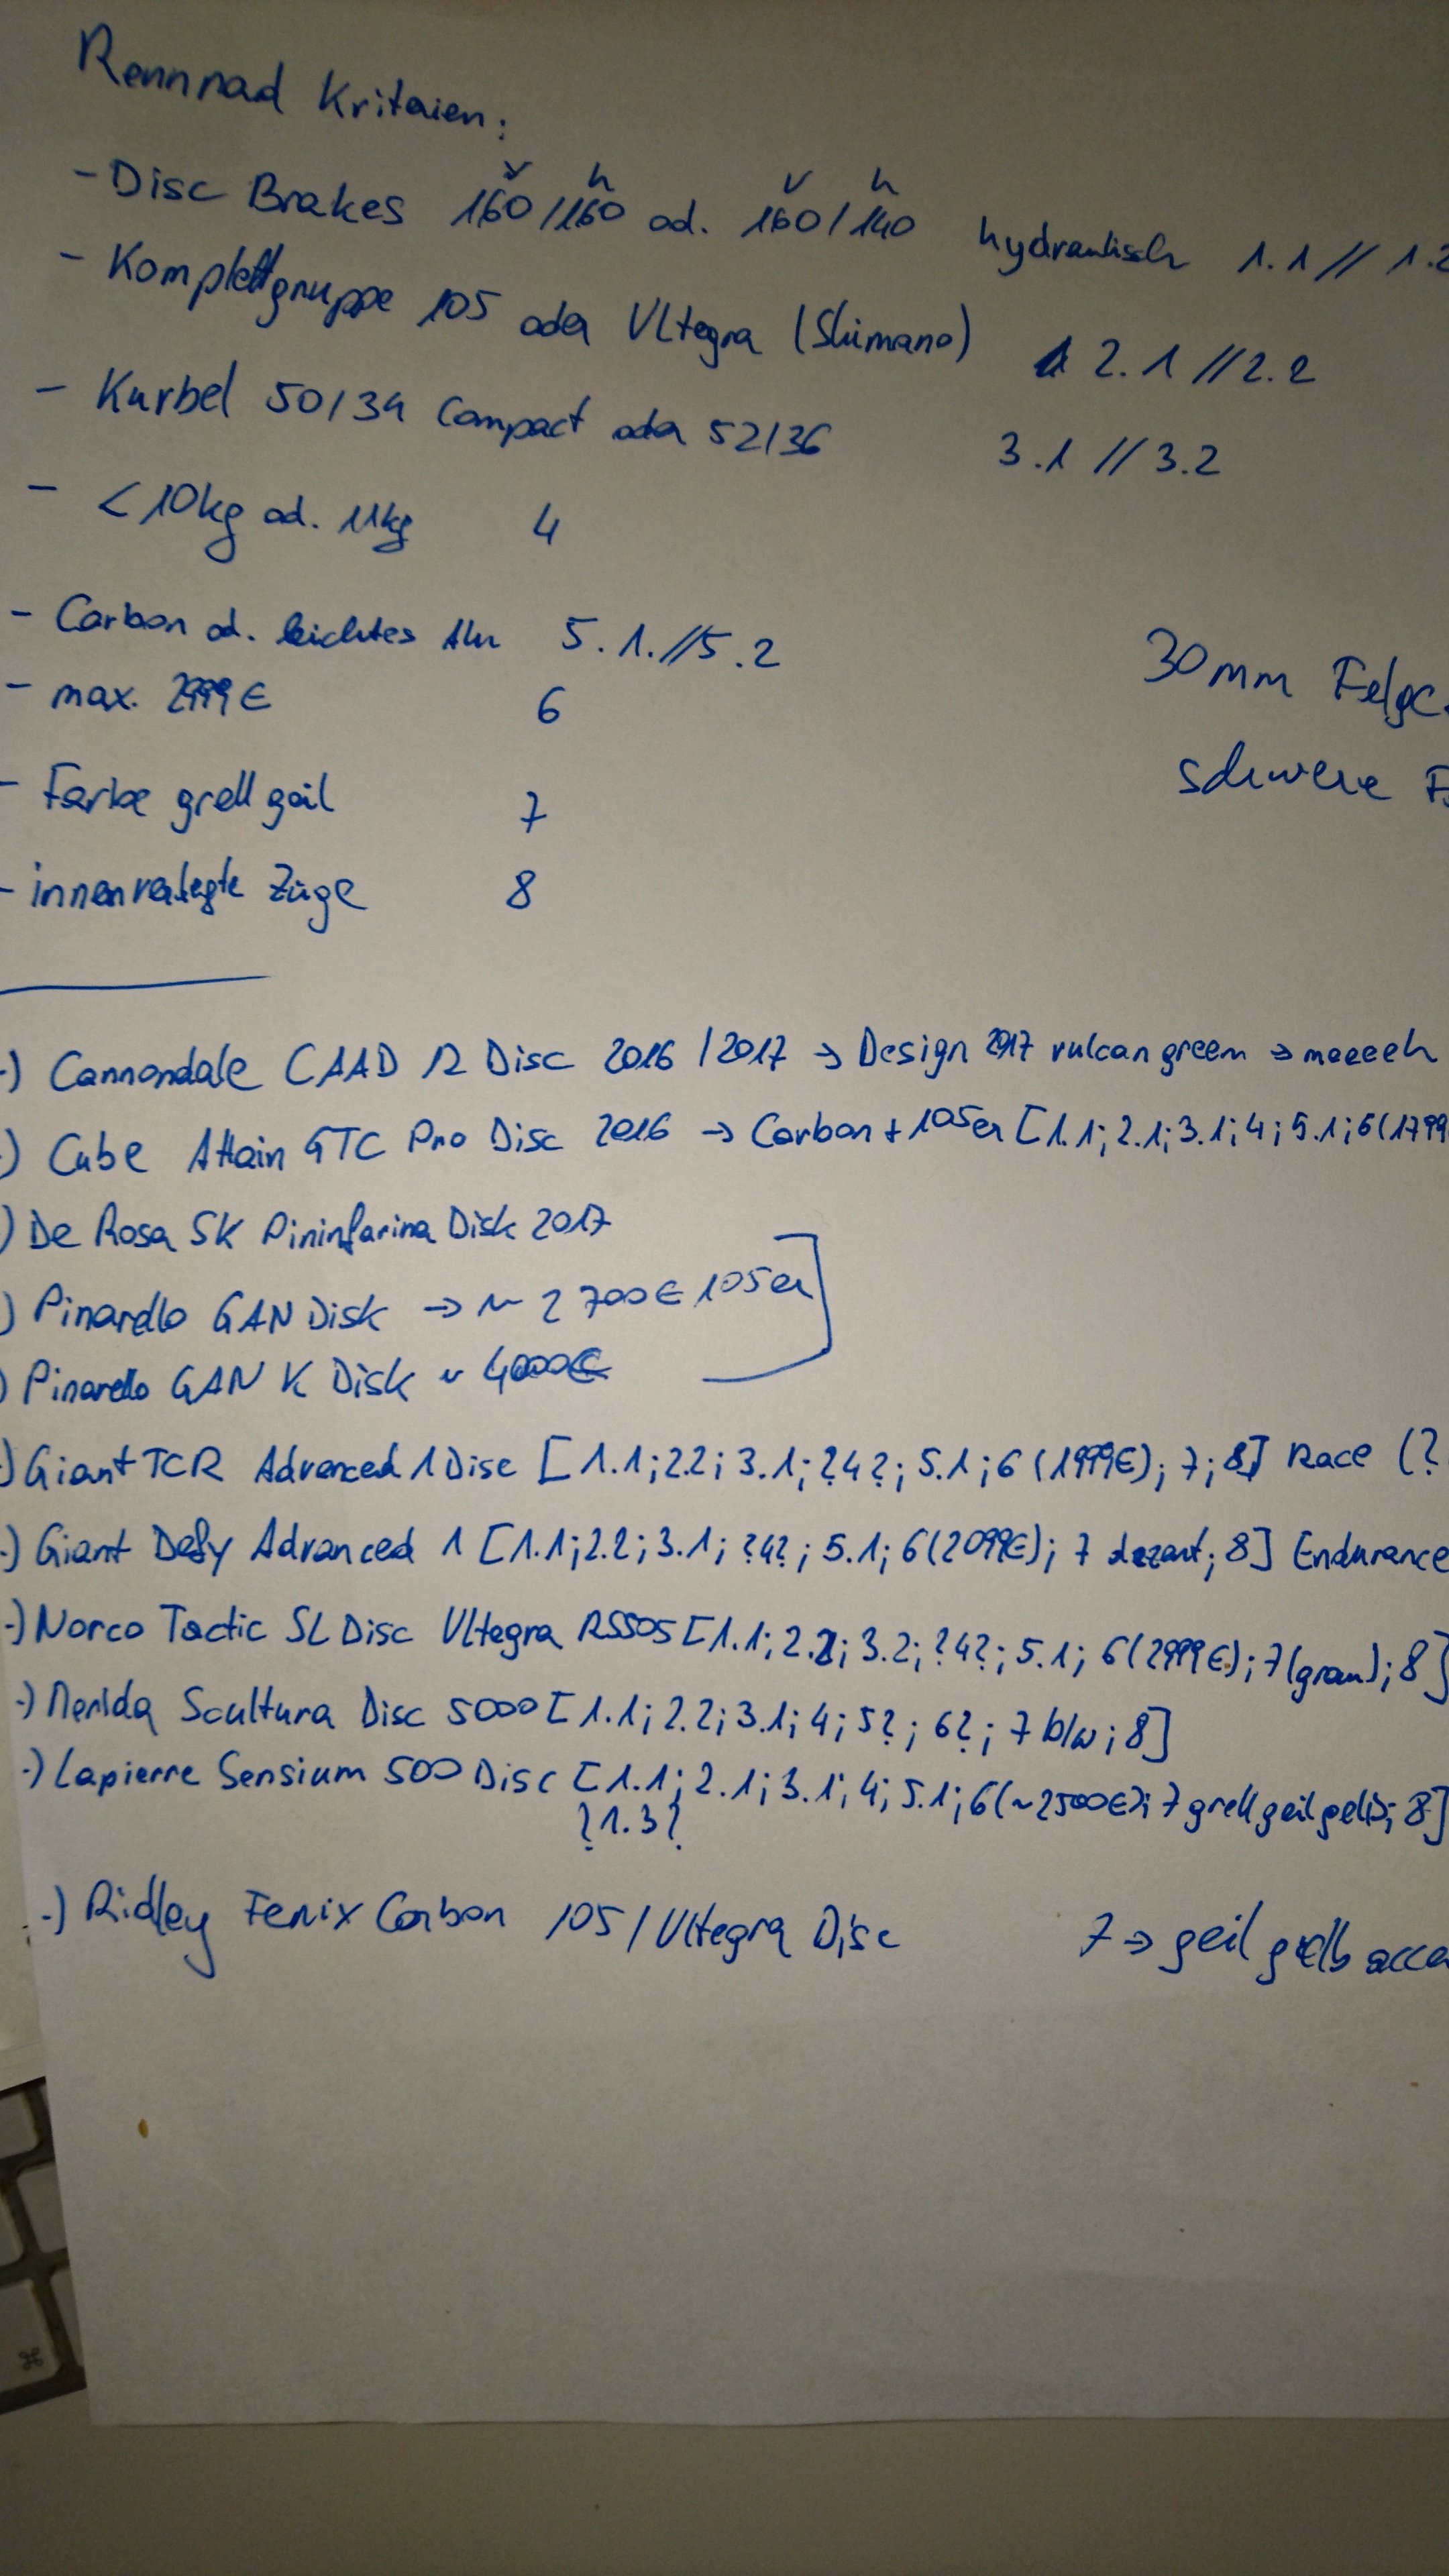 Rennrad Kriterien:
v h v h
- Disc Brakes 160/160 od. 160/140 hydraulisch 1.1 // 1.2
- Komplettgruppe 105 oder Ultegra (Shimano) 2.1 // 2.2
- Kurbel 50/34 Compact oder 52/36 3.1 // 3.2
- < 10kg od. 11kg 4
- Carbon od. leichtes Alu 5.1. // 5.2
30mm
- max. 2999€ 6
schwere
- Farbe grell geil 7
- innenverlegte Züge 8
-) Cannondale CAAD 12 Disc 2016 / 2017 → Design 2017 vulcan green → meeeeh
-) Cube Attain GTC Pro Disc 2016 → Carbon + 105er [1.1; 2.1; 3.1; 4; 5.1; 6 (1799
) De Rosa SK Pininfarina Disk 2017
) Pinarello GAN Disk → ~ 2700€ 105er
) Pinarello GAN K Disk ~ 4000€
-) Giant TCR Advanced 1 Disc [1.1; 2.2; 3.1; ?4?; 5.1; 6 (1999€); 7; 8] Race (?
-) Giant Defy Advanced 1 [1.1; 2.2; 3.1; ?4?; 5.1; 6 (2099€); 7 dezent; 8] Endurance
-) Norco Tactic SL Disc Ultegra RS505 [1.1; 2.2; 3.2; ?4?; 5.1; 6 (2999€); 7 (grau); 8]
-) Merida Scultura Disc 5000 [1.1; 2.2; 3.1; 4; 5?; 6?; 7 b/w; 8]
-) Lapierre Sensium 500 Disc [1.1; 2.1; 3.1; 4; 5.1; 6 (~2500€); 7 grell geil gelb; 8]
?1.3?
-) Ridley Fenix Carbon 105 / Ultegra Disc 7 → geil gelb
⌘